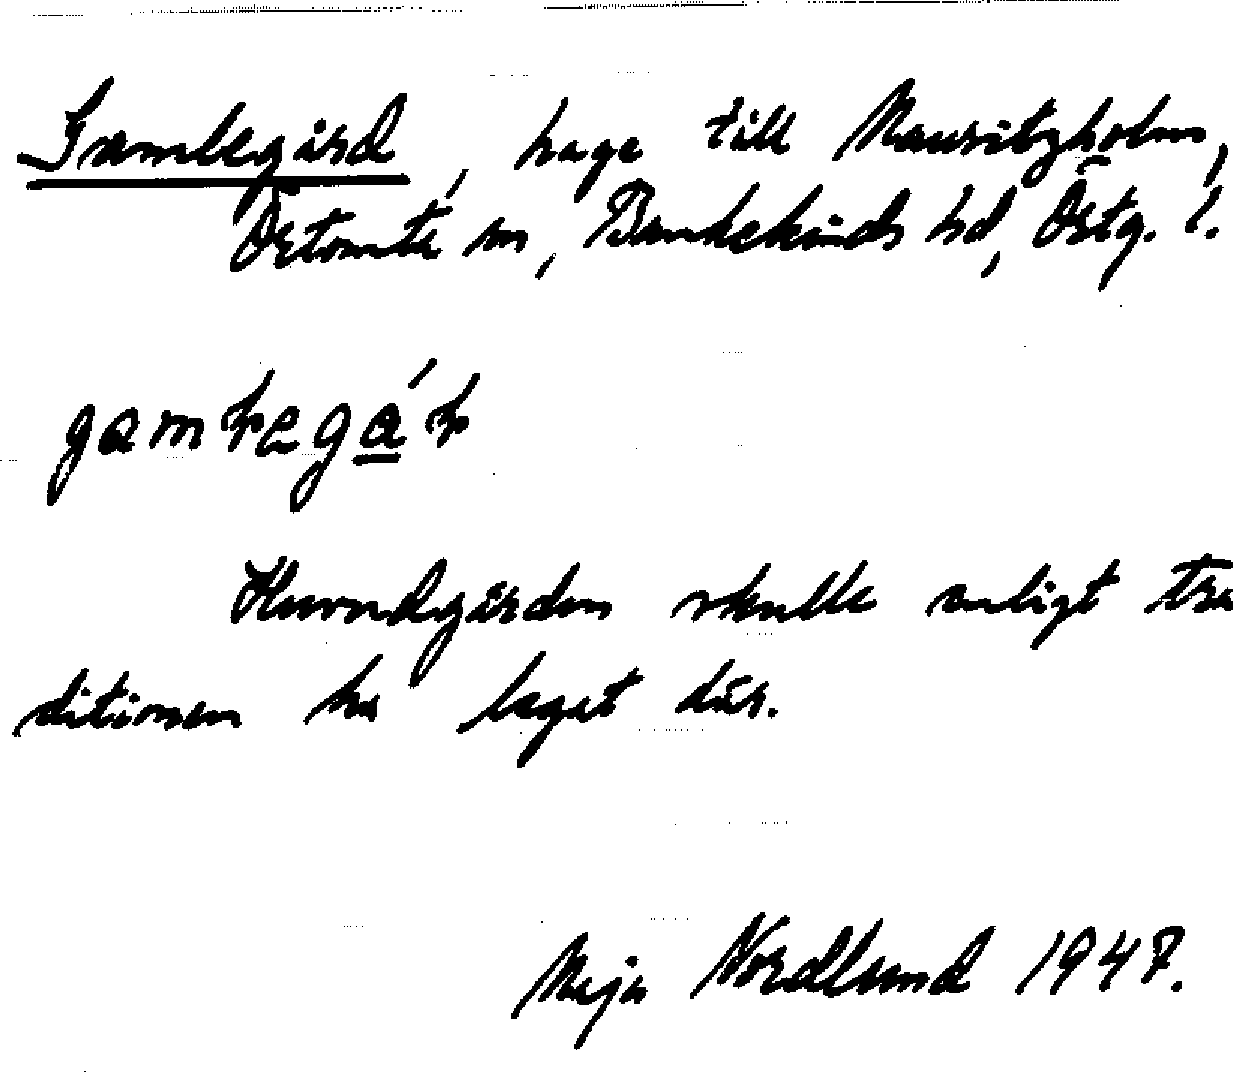 Gamlegård, hage till Mauritzholm,
Örtomta sn, Bankekinds hd, Östg. l.
gamlegá
Huvudgården skulle enligt tra
ditionen ha legat där.
Maja Nordlund 1947.